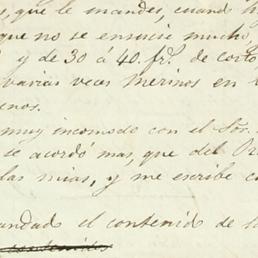 s, que le mandes, cuando h
que no se ensucie mucho,
y de 30 á 40. fr.ˢ de corto
varias veces Merinos en l
enos.
muy incomodo con el Sor.
se acordó mas, que del Pr
las mias, y me escribe c
andad el contenid de la